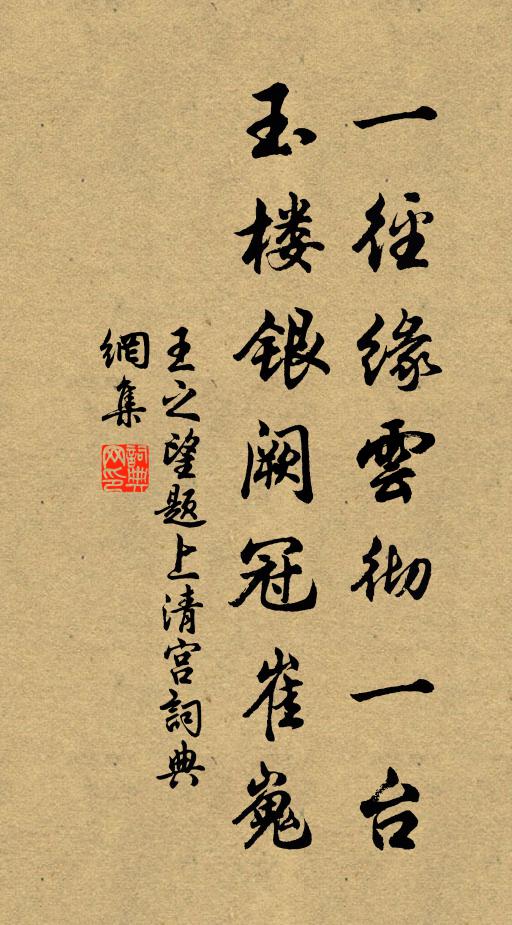 一徑緣雲彻一台
玉楼銀阙冠崔嵬
王之望题上清宫詞典
網集
詞典
网印